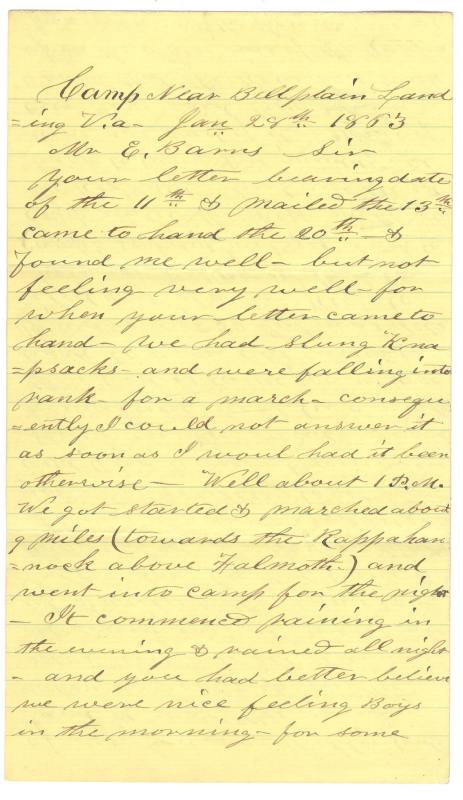 Camp Near Bellplain Land
=ing Va- Jan 28th 1863
Mr E. Barns Sir
your letter bearing date
of the 11th & mailed the 13th
came to hand the 20th - &
found me well - but not
feeling very well - for
when your letter came to
hand - we had slung Kna
=psacks - and were falling into
rank - for a march - consequ
=ently I could not answer it
as soon as I woul had it been
otherwise - Well about 1 P.M.
We got started & marched about
9 miles (towards the Rappahan
=nock above Falmoth.) and
went into camp for the night
- It commenced raining in
the evening & rained all night
- and you had better believe
we were nice feeling Boys
in the morning - for some